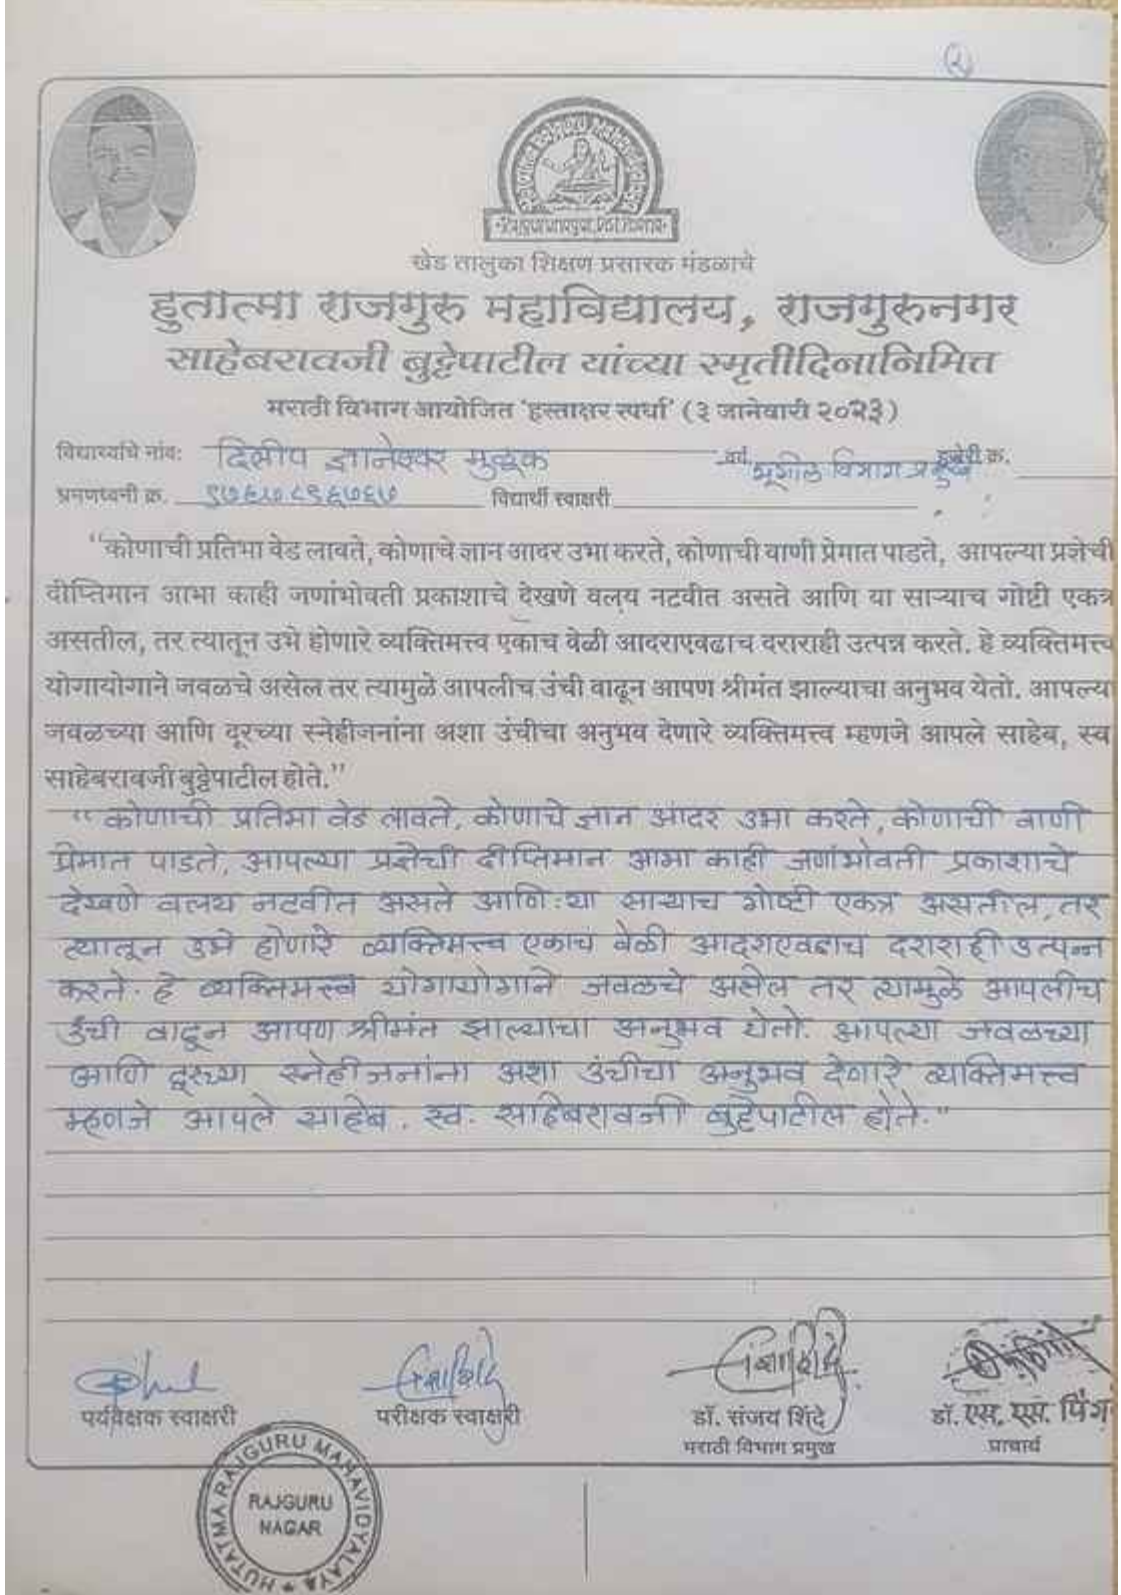 (२)
खेड तालुका शिक्षण प्रसारक मंडळाचे
हुतात्मा राजगुरु महाविद्यालय, राजगुरुनगर
साहेबरावजी बुट्टेपाटील यांच्या स्मृतीदिनानिमित्त
मराठी विभाग आयोजित 'हस्ताक्षर स्पर्धा' (३ जानेवारी २०२३)
विद्यार्थ्याचे नांव: दिलीप ज्ञानेश्वर मुळूक वर्ग भूगोल विभाग प्रमुख हजेरी क्र.
भ्रमणध्वनी क्र. विद्यार्थी स्वाक्षरी
“कोणाची प्रतिभा वेड लावते, कोणाचे ज्ञान आदर उभा करते, कोणाची वाणी प्रेमात पाडते, आपल्या प्रज्ञेची
दीप्तिमान आभा काही जणांभोवती प्रकाशाचे देखणे वलय नटवीत असते आणि या साऱ्याच गोष्टी एकत्र
असतील, तर त्यातून उभे होणारे व्यक्तिमत्त्व एकाच वेळी आदराएवढाच दराराही उत्पन्न करते. हे व्यक्तिमत्त्व
योगायोगाने जवळचे असेल तर त्यामुळे आपलीच उंची वाढून आपण श्रीमंत झाल्याचा अनुभव येतो. आपल्या
जवळच्या आणि दूरच्या स्नेहीजनांना अशा उंचीचा अनुभव देणारे व्यक्तिमत्त्व म्हणजे आपले साहेब, स्व
साहेबरावजी बुट्टेपाटील होते.”
“कोणाची प्रतिभा वेड लावते, कोणाचे ज्ञान आदर उभा करते, कोणाची वाणी
प्रेमात पाडते, आपल्या प्रज्ञेची दीप्तिमान आभा काही जणांभोवती प्रकाशाचे
देखणे वलय नटवीत असते आणि या साऱ्याच गोष्टी एकत्र असतील, तर
त्यातून उभे होणारे व्यक्तिमत्त्व एकाच वेळी आदराएवढाच दराराही उत्पन्न
करते. हे व्यक्तिमत्त्व योगायोगाने जवळचे असेल तर त्यामुळे आपलीच
उंची वाढून आपण श्रीमंत झाल्याचा अनुभव येतो. आपल्या जवळच्या
आणि दूरच्या स्नेहीजनांना अशा उंचीचा अनुभव देणारे व्यक्तिमत्त्व
म्हणजे आपले साहेब. स्व. साहेबरावजी बुट्टेपाटील होते."
पर्यवेक्षक स्वाक्षरी परीक्षक स्वाक्षरी डॉ. संजय शिंदे डॉ. एस. एस.
मराठी विभाग प्रमुख प्राचार्य
HUTATMA RAJGURU MAHAVIDYALAYA
RAJGURU
NAGAR